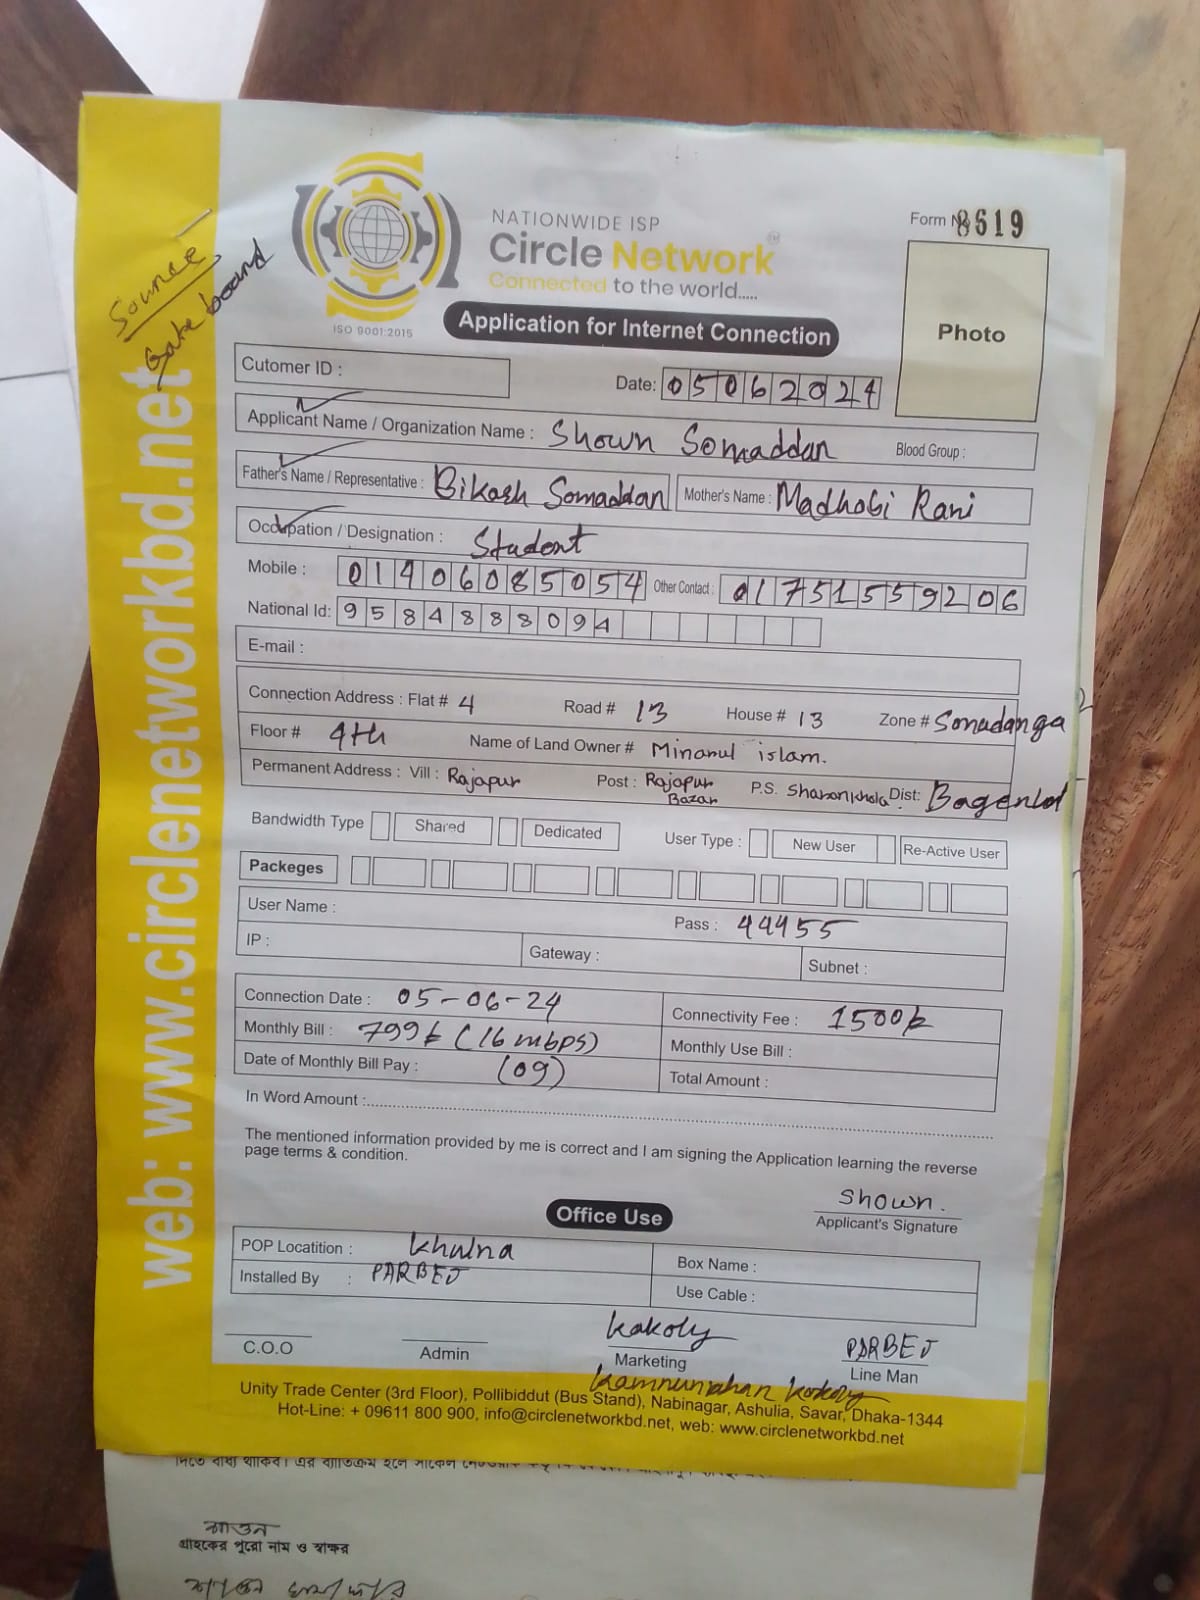 Source
Gate board
web: www.circlenetworkbd.net
NATIONWIDE ISP
Circle Network
Connected to the world.....
ISO 9001:2015
Form No 8619
Photo
Application for Internet Connection
Cutomer ID :
Date: 05062024
Applicant Name / Organization Name : Shown Somaddan
Blood Group :
Father's Name / Representative : Bikash Somaddan Mother's Name : Madhobi Rani
Occupation / Designation : Student
Mobile : 01406085054 Other Contact : 01751559206
National Id: 9584888094
E-mail :
Connection Address : Flat # 4 Road # 13 House # 13 Zone # Sonadanga
Floor # 4th Name of Land Owner # Minarul islam.
Permanent Address : Vill : Rajapur Post : Rajapur Bazar P.S. Sharonkhola Dist:
Bandwidth Type Shared Dedicated User Type : New User Re-Active User
Packeges
User Name : Pass : 44455
IP : Gateway : Subnet :
Connection Date : 05-06-24 Connectivity Fee : 1500
Monthly Bill : 799 (16 mbps) Monthly Use Bill :
Date of Monthly Bill Pay : (09) Total Amount :
In Word Amount :
The mentioned information provided by me is correct and I am signing the Application learning the reverse
page terms & condition.
Shown.
Applicant's Signature
Office Use
POP Locatition : Khulna Box Name :
Installed By : PARBEJ Use Cable :
Kakoly PARBEJ
C.O.O Admin Marketing Line Man
Unity Trade Center (3rd Floor), Pollibiddut (Bus Stand), Nabinagar, Ashulia, Savar, Dhaka-1344
Hot-Line: + 09611 800 900, info@circlenetworkbd.net, web: www.circlenetworkbd.net
শাওন
গ্রাহকের পুরো নাম ও স্বাক্ষর